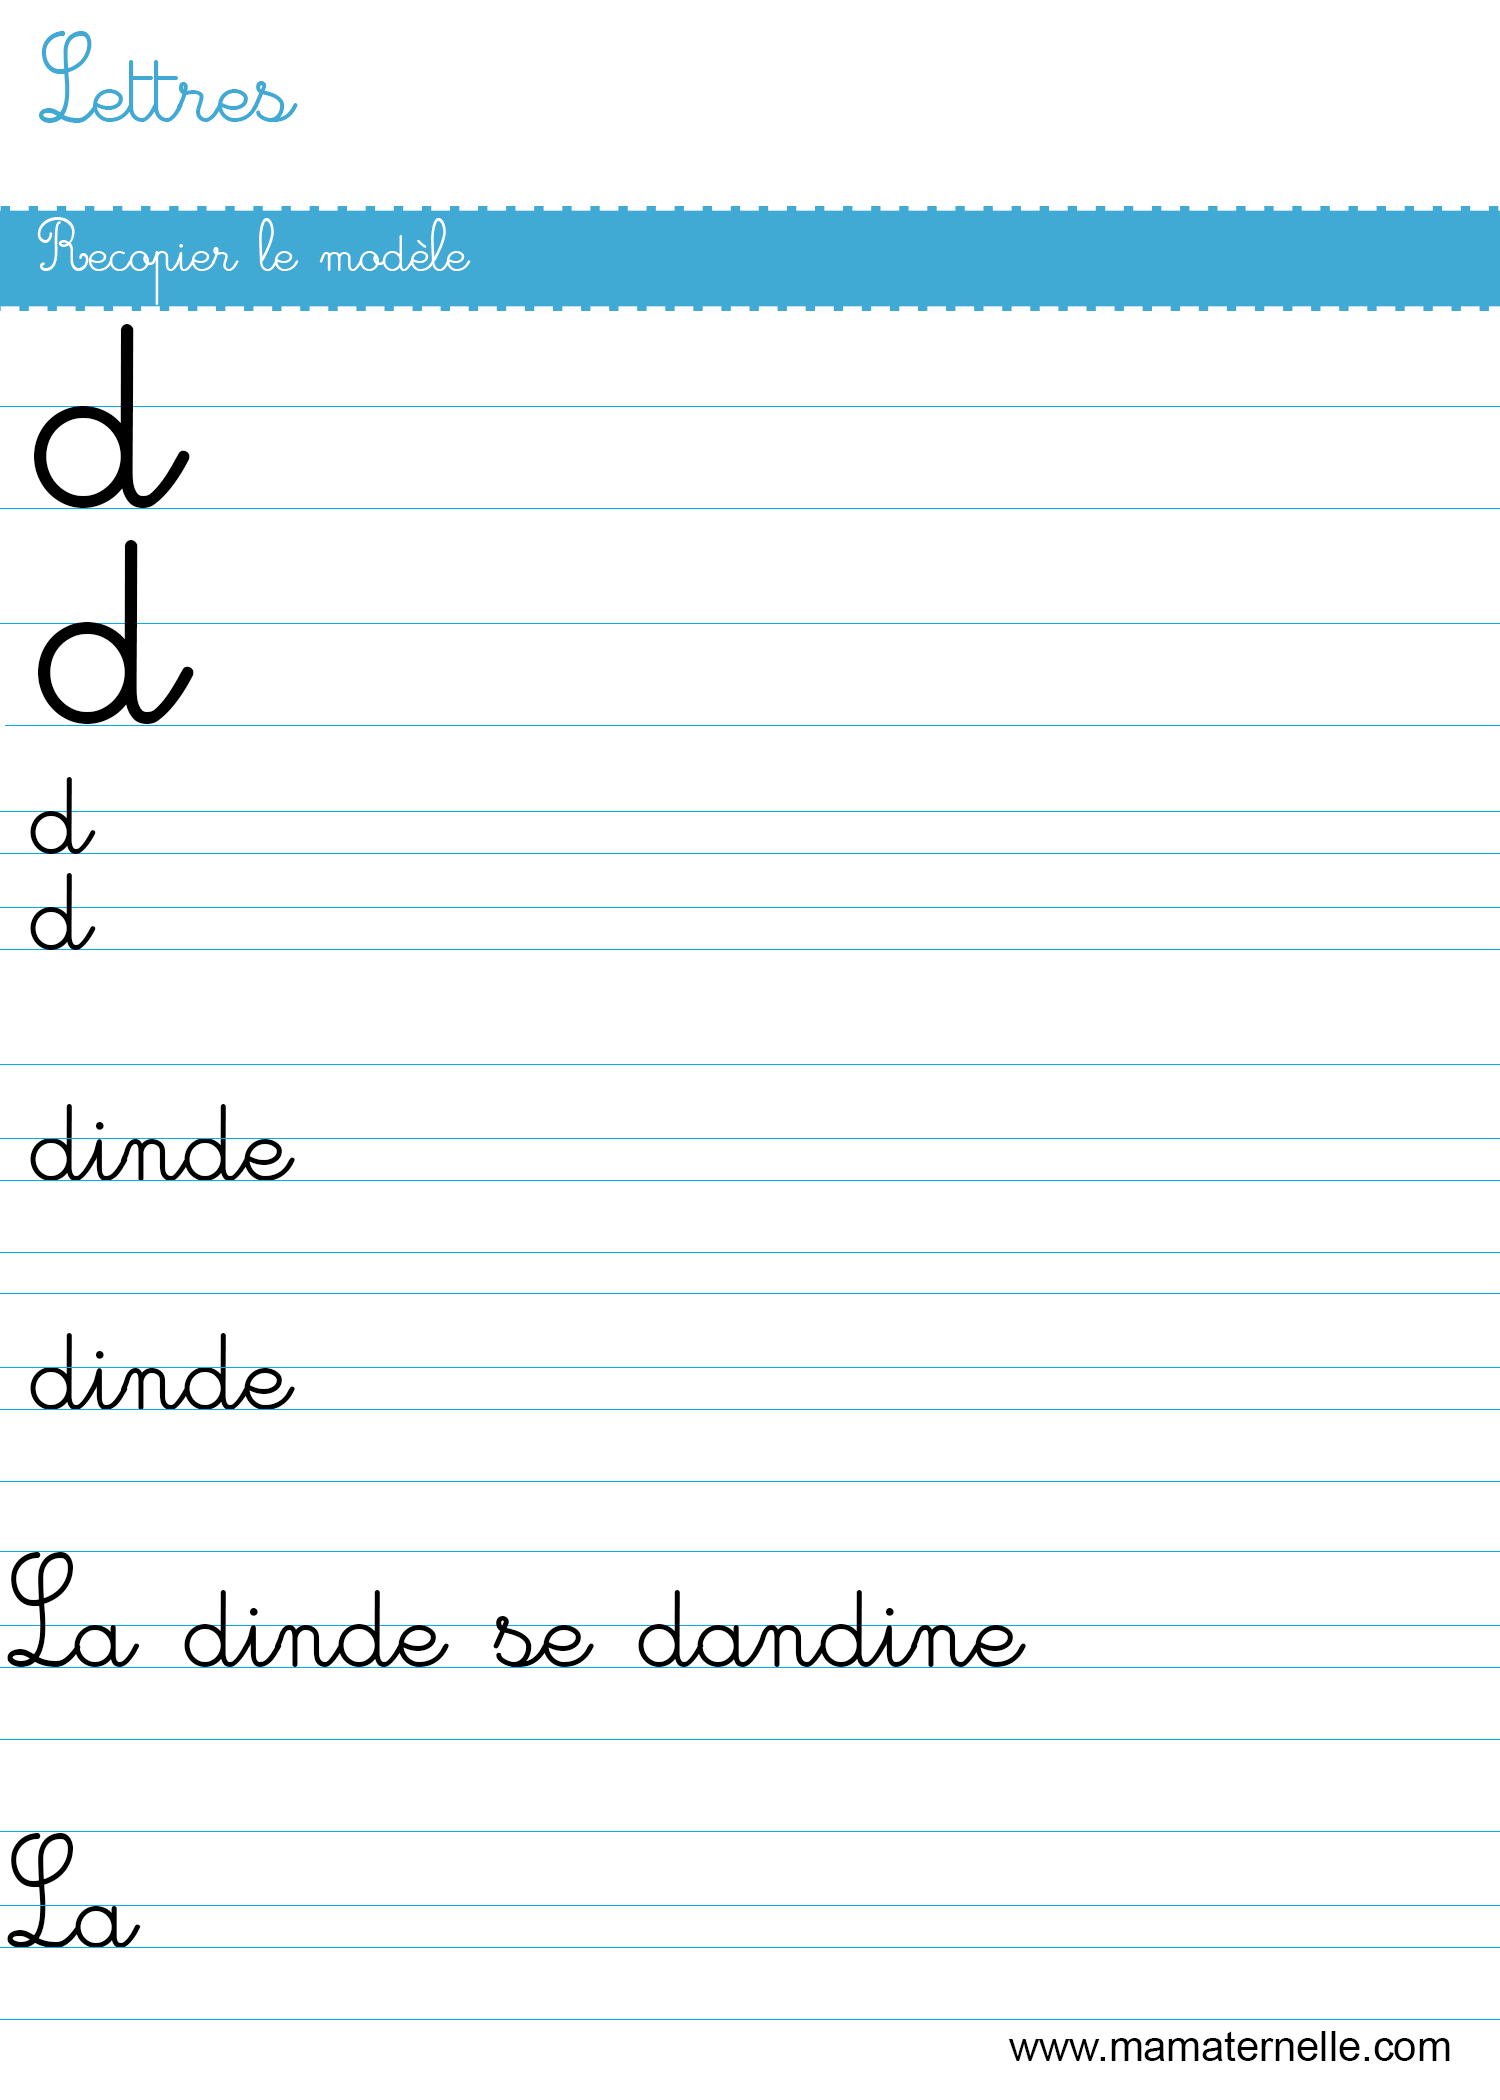 Lettres
Recopier le modèle
d
d
d
d
dinde
dinde
La dinde se dandine
La
www.mamaternelle.com